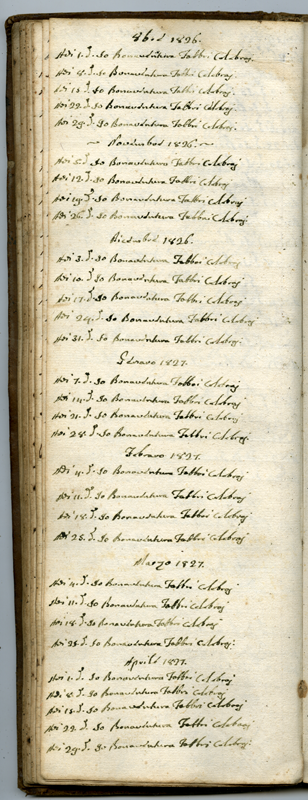 8bre 1826.
Adi 1. d.º Io Bonaventura Fabbri Celebraj.
Adi 8. d.º Io Bonaventura Fabbri Celebraj
Adi 15. d.º Io Bonaventura Fabbri Celebraj
Adi 22. d.º Io Bonaventura Fabbri Celebraj
Adi 29. d.º Io Bonaventura Fabbri Celebraj.
~ Novembre 1826. ~
Adi 5. d.º Io Bonaventura Fabbri Celebraj
Adi 12. d.º Io Bonaventura Fabbri Celebraj
Adi 19. d.º Io Bonaventura Fabbri Celebraj
Adi 26. d.º Io Bonaventura Fabbri Celebraj
Dicembre 1826.
Adi 3. d.º Io Bonaventura Fabbri Celebraj
Adi 10. d.º Io Bonaventura Fabbri Celebraj
Adi 17. d.º Io Bonaventura Fabbri Celebraj
Adi 24. d.º Io Bonaventura Fabbri Celebraj
Adi 31. d.º Io Bonaventura Fabbri Celebraj.
Genaro 1827.
Adi 7. d.º Io Bonaventura Fabbri Celebraj
Adi 14. d.º Io Bonaventura Fabbri Celebraj
Adi 21. d.º Io Bonaventura Fabbri Celebraj
Adi 28. d.º Io Bonaventura Fabbri Celebraj.
Febraro 1827.
Adi 4. d.º Io Bonaventura Fabbri Celebraj
Adi 11. d.º Io Bonaventura Fabbri Celebraj
Adi 18. d.º Io Bonaventura Fabbri Celebraj
Adi 25. d.º Io Bonaventura Fabbri Celebraj
Marzo 1827.
Adi 4. d.º Io Bonaventura Fabbri Celebraj
Adi 11. d.º Io Bonaventura Fabbri Celebraj
Adi 18. d.º Io Bonaventura Fabbri Celebraj
Adi 25. d.º Io Bonaventura Fabbri Celebraj.
Aprile 1827.
Adi 1. d.º Io Bonaventura Fabbri Celebraj
Adi 8. d.º Io Bonaventura Fabbri Celebraj
Adi 15. d.º Io Bonaventura Fabbri Celebraj
Adi 22. d.º Io Bonaventura Fabbri Celebraj
Adi 29. d.º Io Bonaventura Fabbri Celebraj.